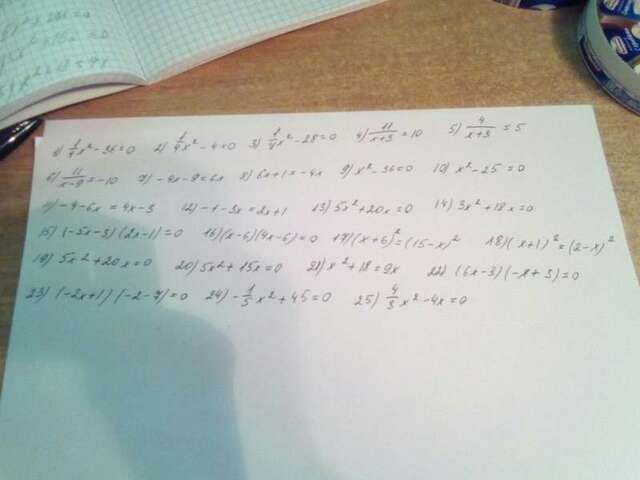 1) 1/4 x² - 36 = 0  2) 1/4 x² - 4 = 0  3) 1/4 x² - 28 = 0  4) 11/(x+3) = 10  5) 4/(x+3) = 5
6) 11/(x-9) = -10  7) -4x-9=6x  8) 6x+1=-4x  9) x²-36=0  10) x²-25=0
11) -4-6x=4x-3  12) -1-3x=2x+1  13) 5x²+20x=0  14) 3x²+18x=0
15) (-5x-3)(2x-1)=0  16) (x-6)(4x-6)=0  17) (x+6)²=(15-x)²  18) (x+1)²=(2-x)²
19) 5x²+20x=0  20) 5x²+15x=0  21) x²+18=9x  22) (6x-3)(-x+3)=0
23) (-2x+1)(-2-7)=0  24) -1/5 x²+45=0  25) 4/3 x²-4x=0